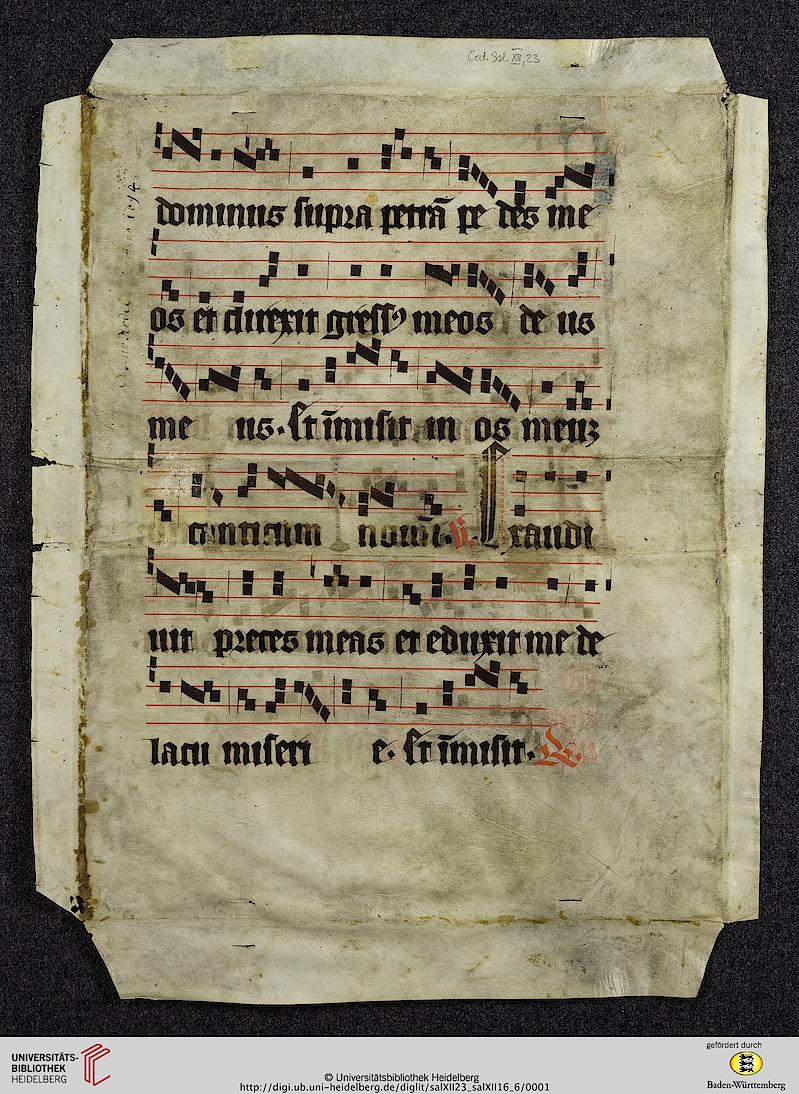 Cod. Sal. XII, 23
dominus supra petrā pe des me
os et direxit gressꝰ meos de us
me us. Et īmisit in os meuꝫ
canticum nouū. ℣. Exaudi
uit preces meas et eduxit me de
lacu miseri e. Et īmisit. ℟.
UNIVERSITÄTS-
BIBLIOTHEK
HEIDELBERG
© Universitätsbibliothek Heidelberg
http://digi.ub.uni-heidelberg.de/diglit/salXII23_salXII16_6/0001
gefördert durch
Baden-Württemberg